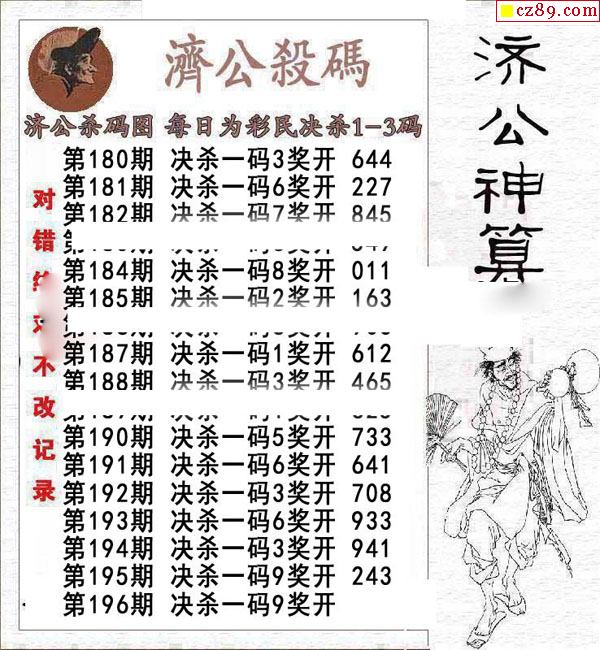 cz89.com
濟公殺碼
济公杀码图 每日为彩民决杀1-3码
第180期 决杀一码3奖开 644
第181期 决杀一码6奖开 227
第182期 决杀一码7奖开 845
第184期 决杀一码8奖开 011
第185期 决杀一码2奖开 163
第187期 决杀一码1奖开 612
第188期 决杀一码3奖开 465
第190期 决杀一码5奖开 733
第191期 决杀一码6奖开 641
第192期 决杀一码3奖开 708
第193期 决杀一码6奖开 933
第194期 决杀一码3奖开 941
第195期 决杀一码9奖开 243
第196期 决杀一码9奖开
对错 不改记录
济公神算